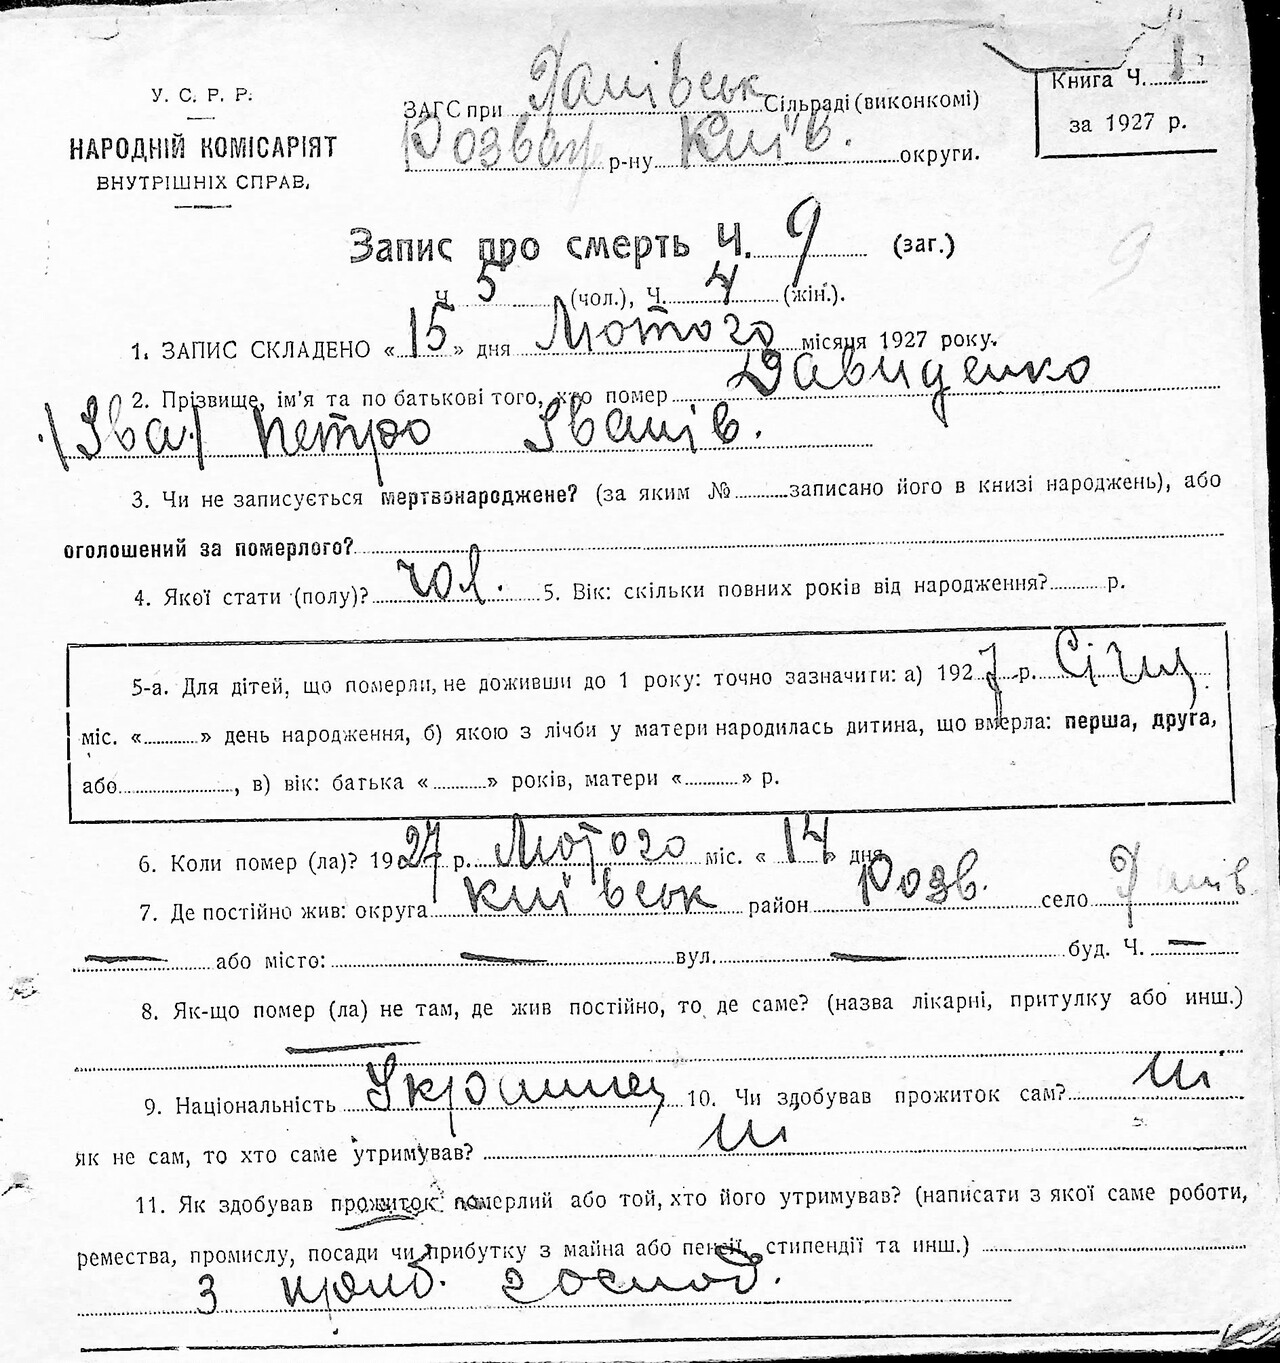 У. С. Р. Р.
НАРОДНІЙ КОМІСАРІЯТ
ВНУТРІШНІХ СПРАВ.
ЗАГС при Ханівськ Сільраді (виконкомі)
Розваж р-ну Київ. округи.
Книга Ч. 1
за 1927 р.
Запис про смерть Ч. 9 (заг.)
9
Ч 5 (чол.), Ч. 4 (жін.).
1. ЗАПИС СКЛАДЕНО «15» дня Лютого місяця 1927 року.
2. Прізвище, ім'я та по батькові того, хто помер Давиденко
/Іва/ Петро Іванів.
3. Чи не записується мертвонароджене? (за яким № записано його в книзі народжень), або
оголошений за померлого?
4. Якої стати (полу)? чол. 5. Вік: скільки повних років від народження? р.
5-а. Для дітей, що померли, не доживши до 1 року: точно зазначити: а) 1927 р. Січня
міс. « » день народження, б) якою з лічби у матери народилась дитина, що вмерла: перша, друга,
або , в) вік: батька « » років, матери « » р.
6. Коли помер (ла)? 1927 р. Лютого міс. «14» дня
7. Де постійно жив: округа Київськ район Розв. село Ханів.
— або місто: — вул. — буд. Ч. —
8. Як-що помер (ла) не там, де жив постійно, то де саме? (назва лікарні, притулку або инш.)
—
9. Національність Українец 10. Чи здобував прожиток сам? ні
як не сам, то хто саме утримував? ні
11. Як здобував прожиток померлий або той, хто його утримував? (написати з якої саме роботи,
ремества, промислу, посади чи прибутку з майна або пенсії, стипендії та инш.)
З приб. господ.